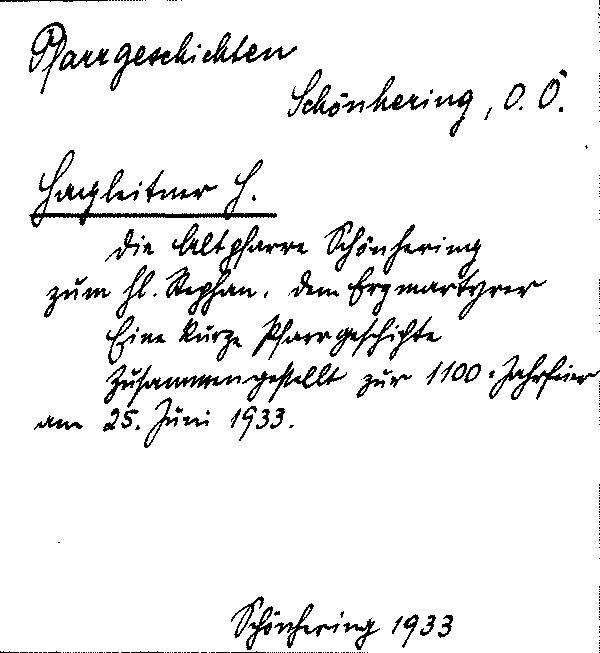 Pfarrgeschichten
Schönhering, O. Ö.
Hargleitner H.
Die Altpfarre Schönhering
zum hl. Stephan, dem Erzmartyrer
Eine kurze Pfarrgeschichte
Zusammengestellt zur 1100-Jahrfeier
am 25. Juni 1933.
Schönhering 1933